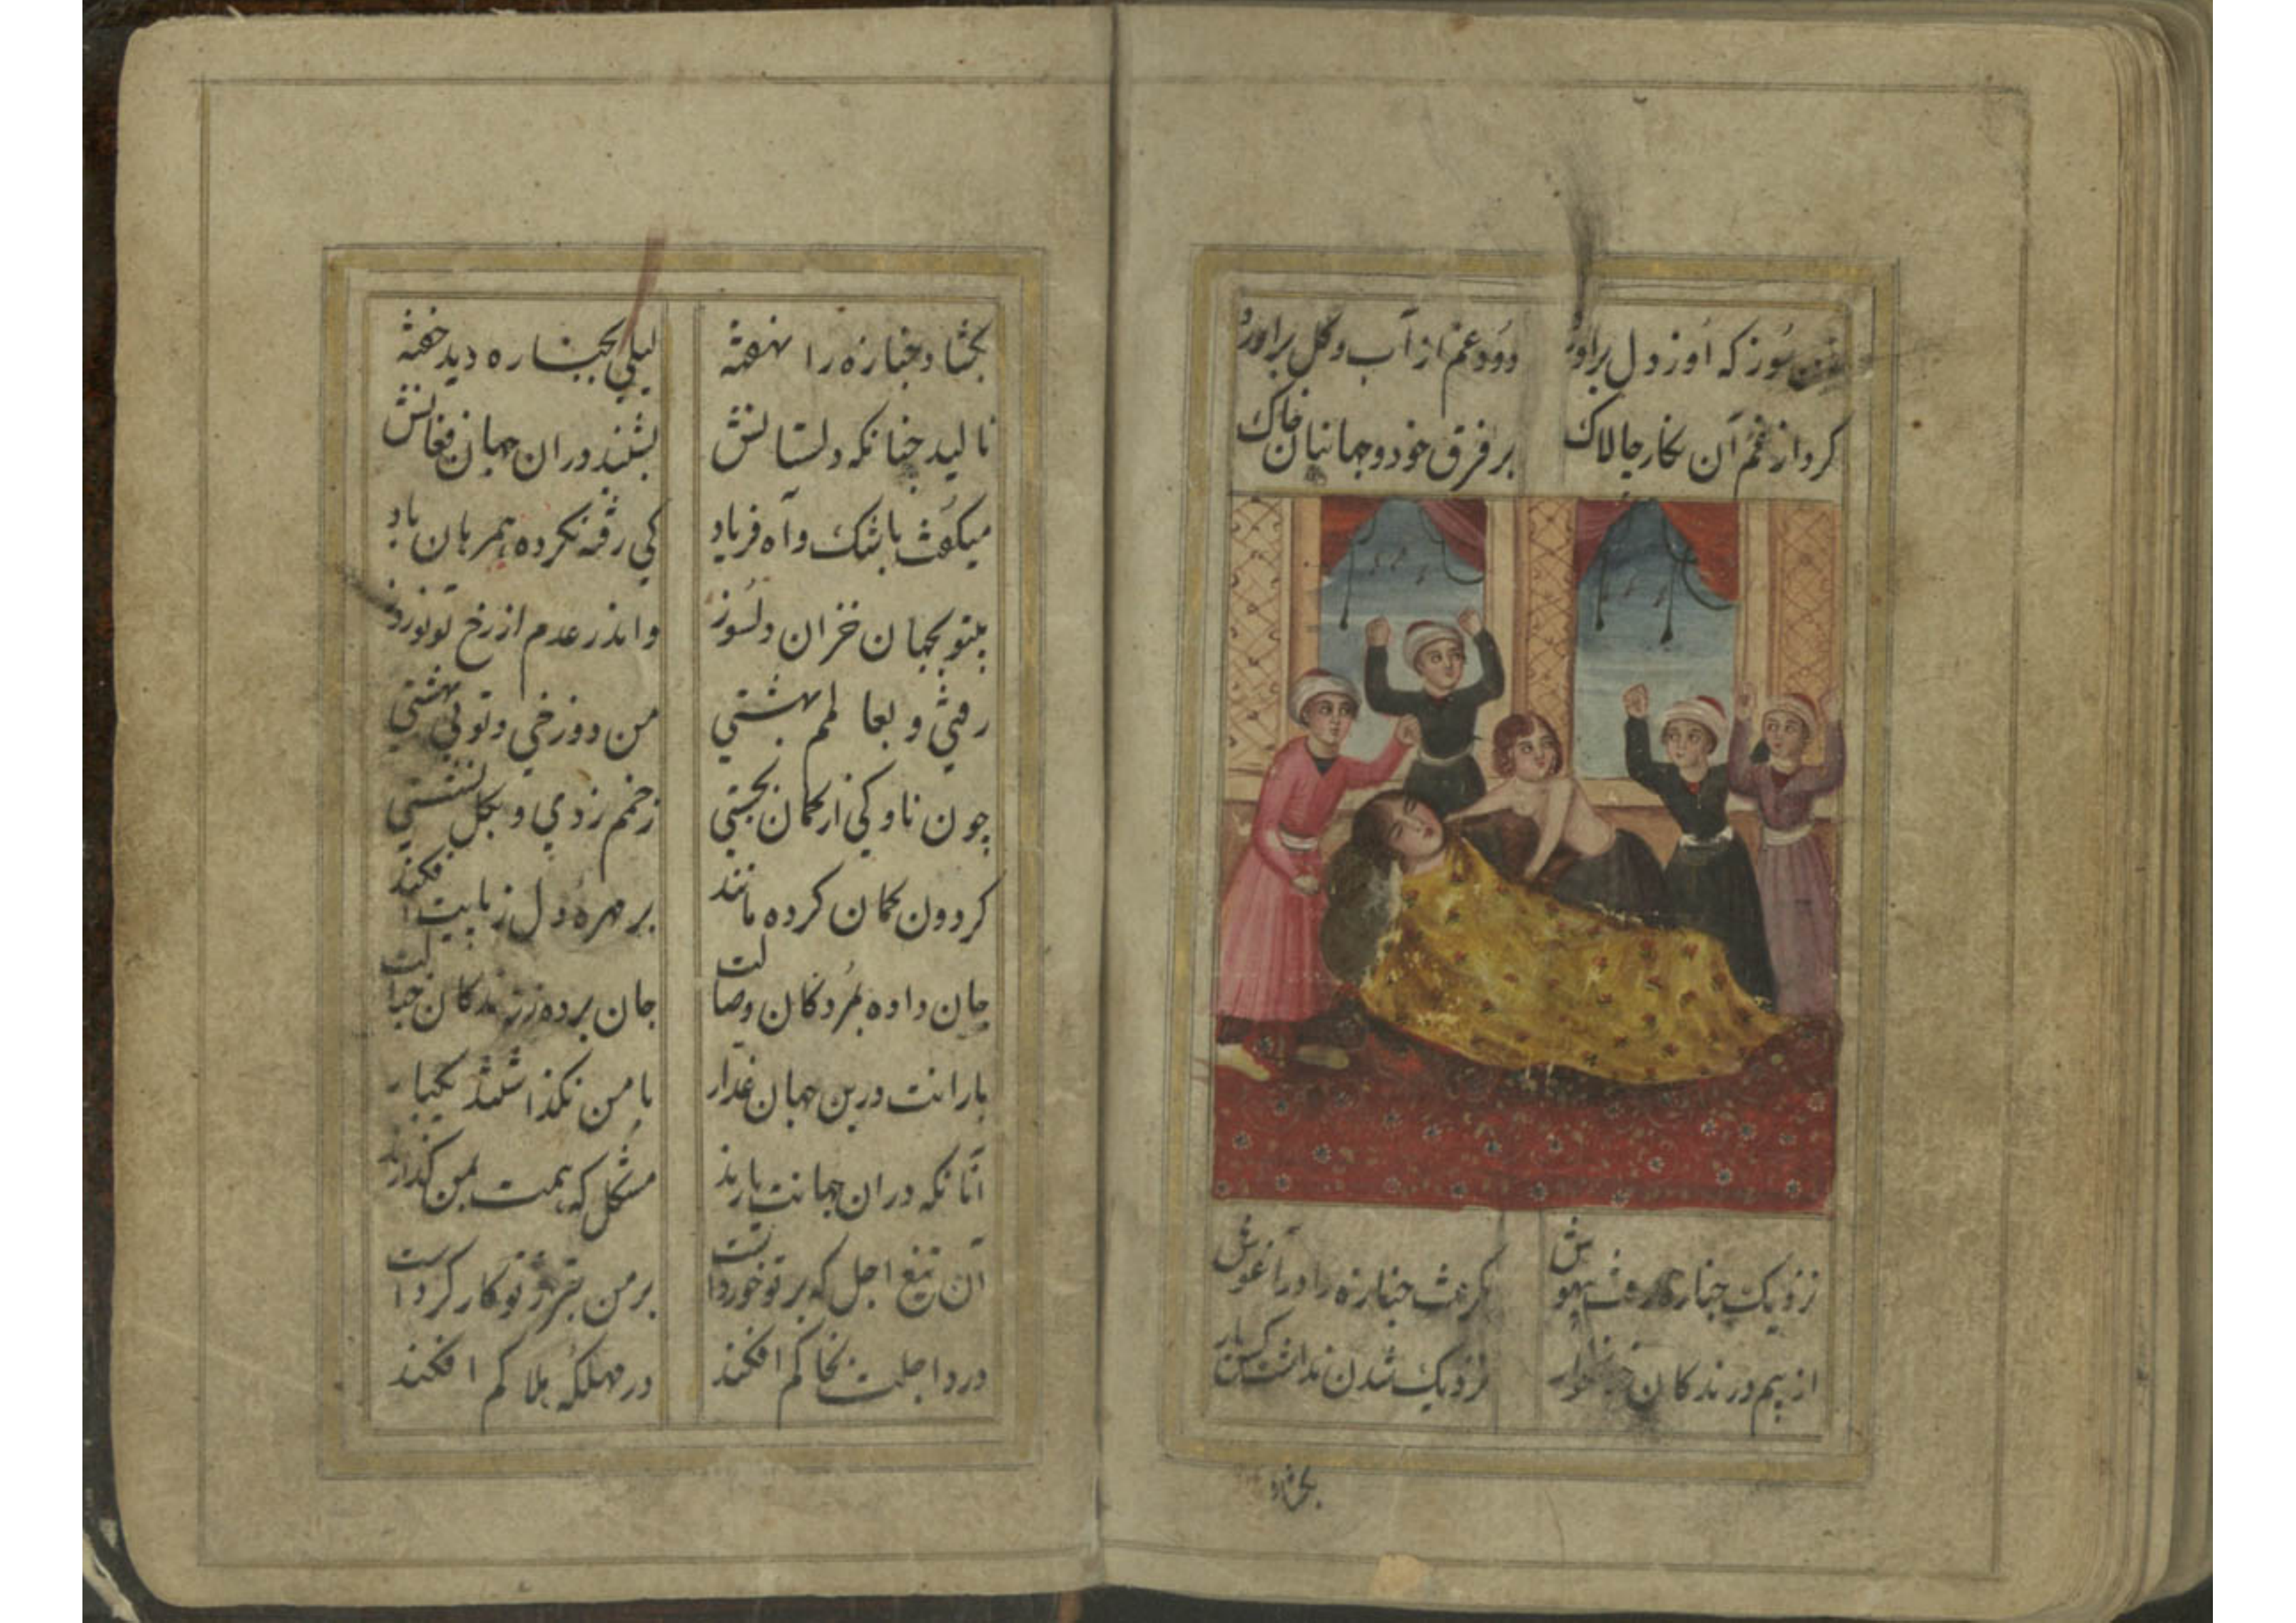 سوز که او ز دل برآورد دود غم از آب و گل برآورد
کرد از غم آن نکار چالاک بر فرق خود و جهانیان خاک
نزدیک جنازه رفت بیهوش بکرفت جنازه را در آغوش
از بیم درندکان خونخوار نزدیک شدن نداشت کس یار
بکشاد
بکشاد جنازه را نهفته لیلی بجنازه دید خفته
نالید چنانکه دلستانش بشنید در ان جهان فغانش
میکفت باشک و آه فریاد کی رفته نکرده همرهان یاد
بیتو بجهان خزان دلسوز واندر عدم از رخ تو نوروز
رفتی و بعالم بهشتی من دوزخی و توئی بهشتی
چون ناوکی از کمان بجستی زخمم زدی و بکل نشستی
کردون بکمان کرده مانند بر مهره دل ز پایت افکند
جان داده بمردکان وصالت جان برده ز زندکان خیالت
یارانت درین جهان غدار با من نکذاشتند یکبار
آنانکه در ان جهانت یارند مشکل که همت بمن کذارند
آن تیغ اجل که بر تو خورداست بر من بتر از تو کار کرداست
درد اجلت بخاکم افکند در مهلکه هلاکم افکند